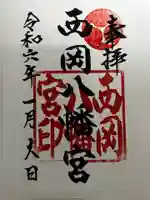 奉拝
西岡八幡宮
令和六年一月日
西岡
八幡
宮印